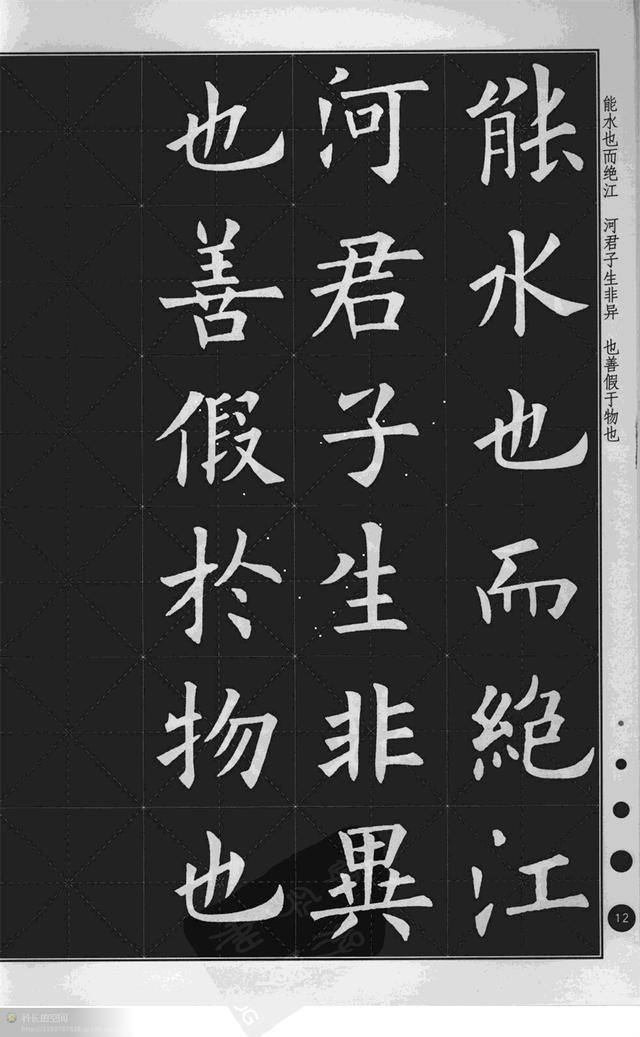 能水也而絶江
河君子生非異
也善假於物也
能水也而绝江 河君子生非异 也善假于物也
12
科长的空间